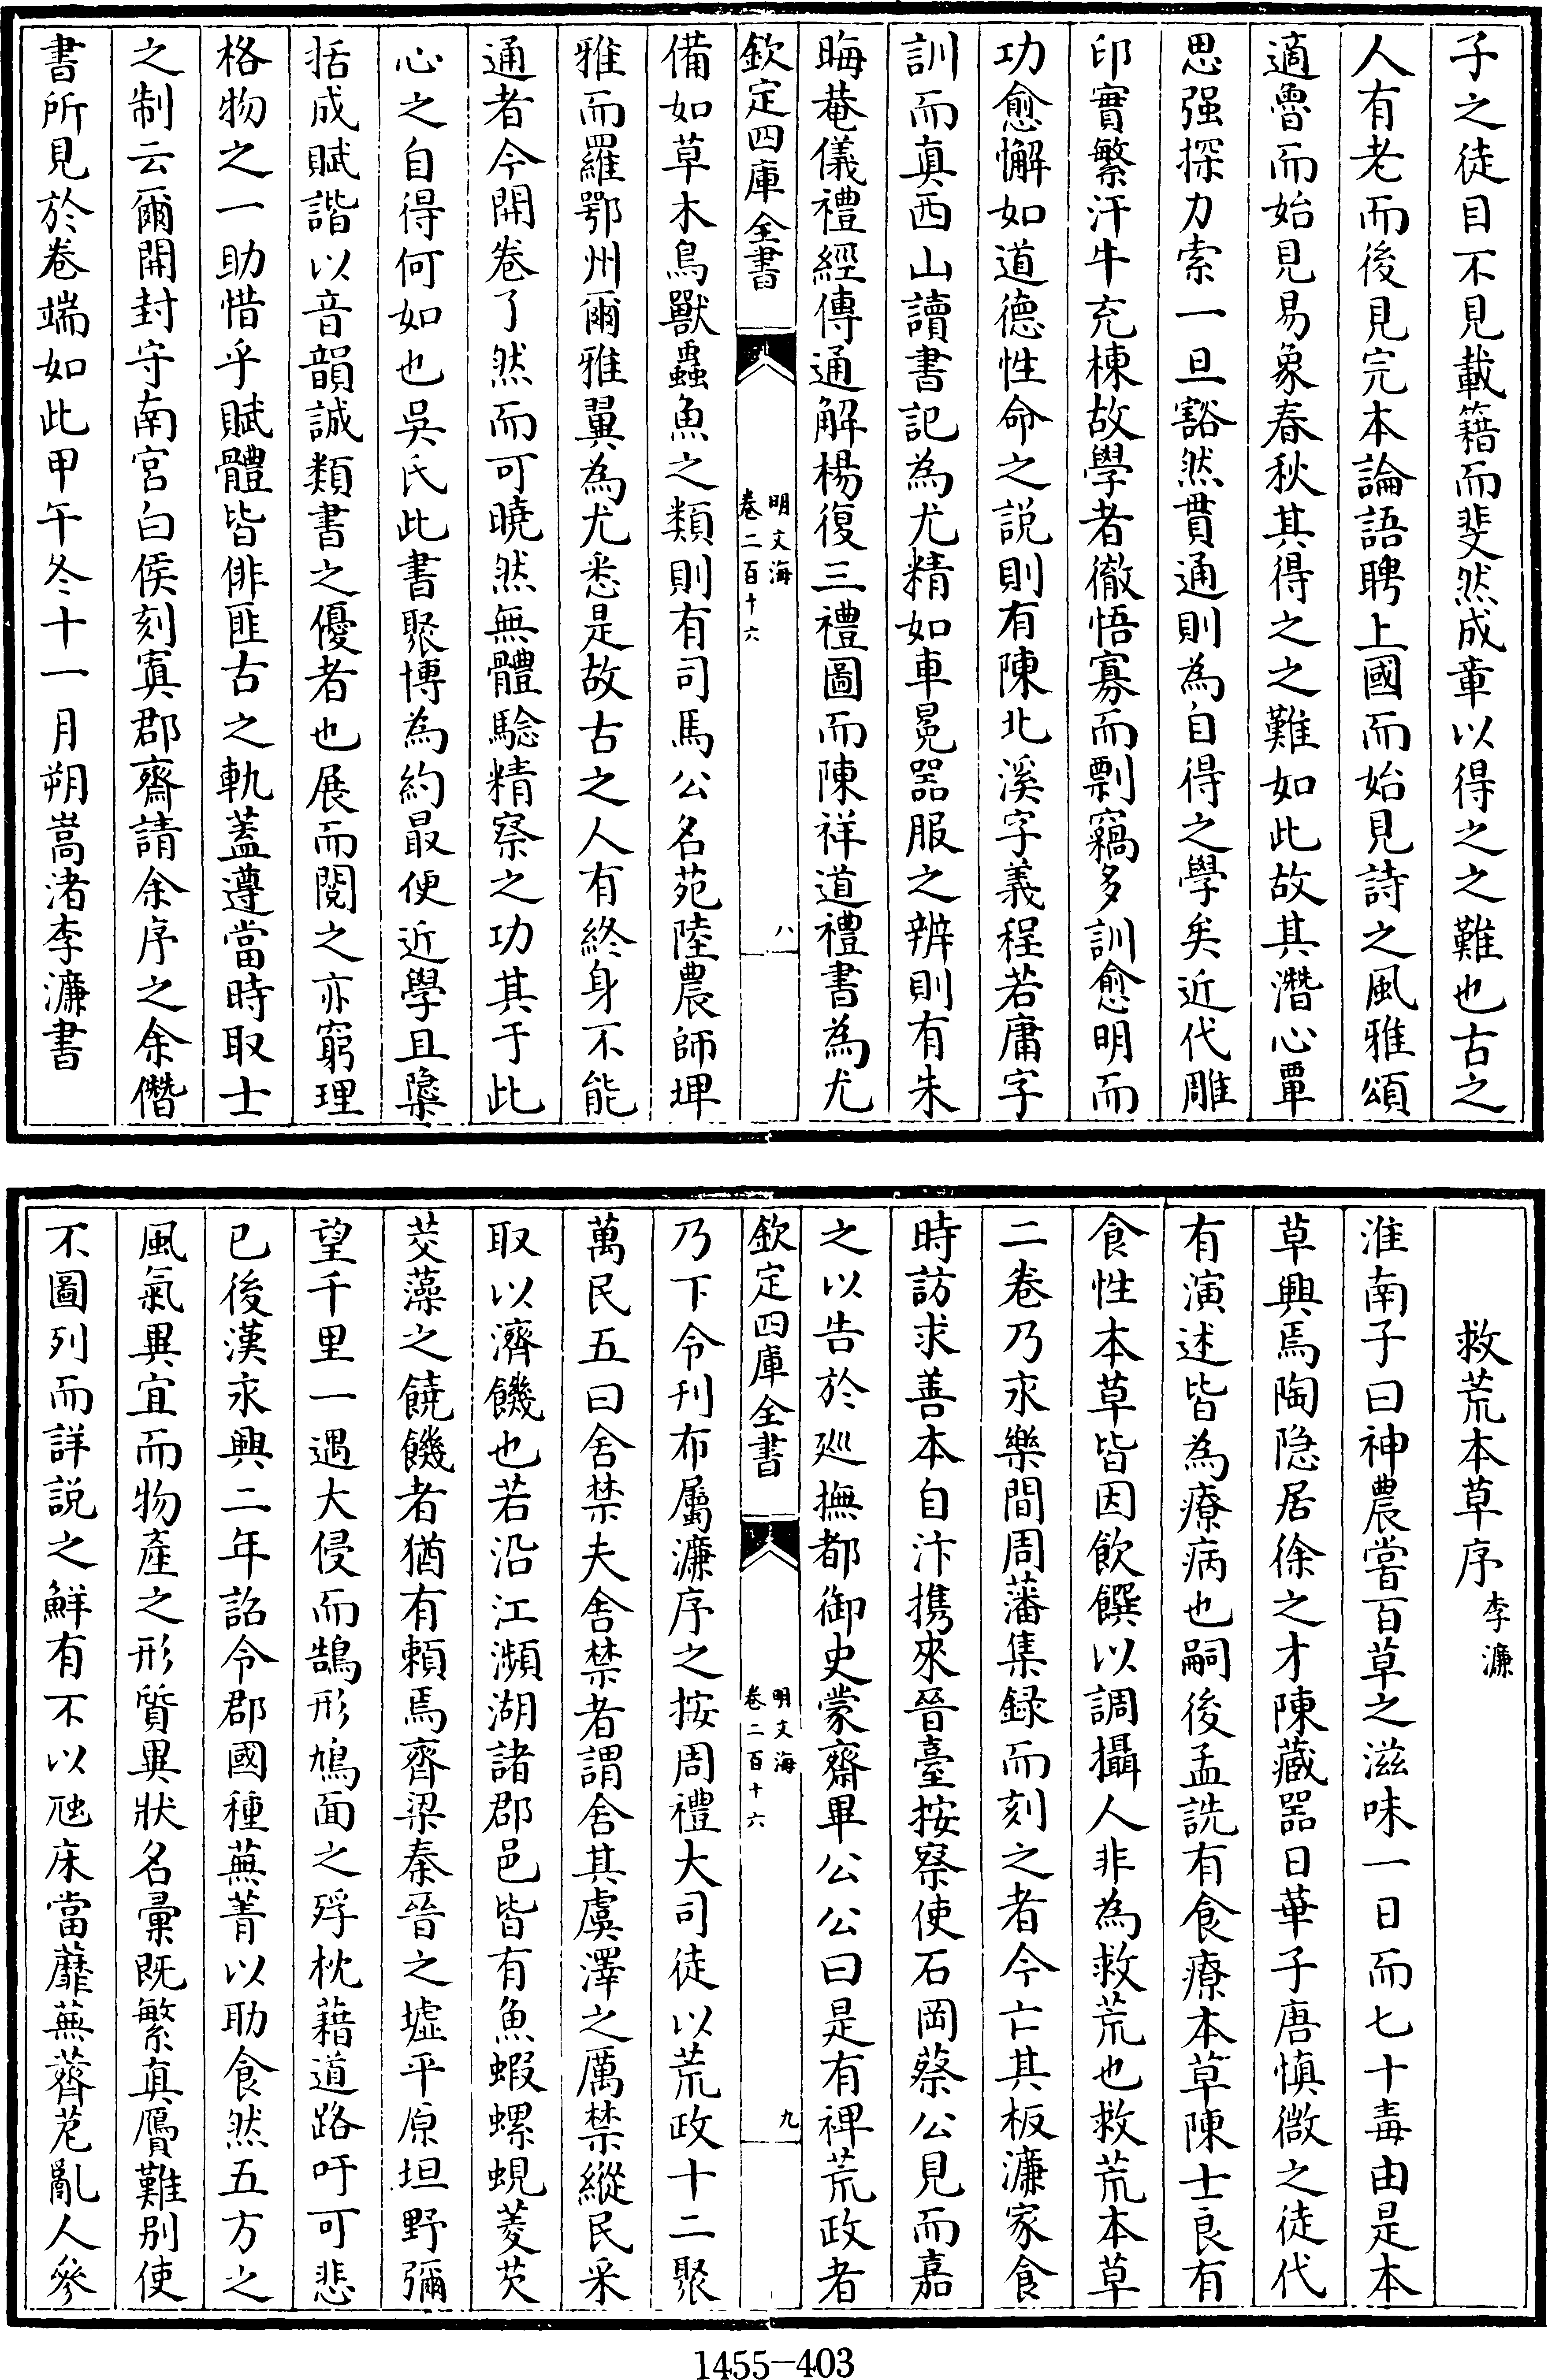 子之徒目不見載籍而斐然成章以得之之難也古之
人有老而後見完本論語聘上國而始見詩之風雅頌
適魯而始見易象春秋其得之之難如此故其潛心覃
思强探力索一旦豁然貫通則為自得之學矣近代雕
印實繁汗牛充棟故學者徹悟寡而剽竊多訓愈明而
功愈懈如道德性命之說則有陳北溪字義程若庸字
訓而真西山讀書記為尤精如車冕器服之辨則有朱
晦菴儀禮經傳通解楊復三禮圖而陳祥道禮書為尤
欽定四庫全書
明文海
卷二百十六
八
備如草木鳥獸蟲魚之類則有司馬公名苑陸農師埤
雅而羅鄂州爾雅翼為尤悉是故古之人有終身不能
通者今開卷了然而可曉然無體驗精察之功其于此
心之自得何如也吳氏此書聚博為約最便近學且檃
括成賦諧以音韻誠類書之優者也展而閱之亦窮理
格物之一助惜乎賦體皆俳匪古之軌蓋遵當時取士
之制云爾開封守南宮白侯刻寘郡齋請余序之余僭
書所見於卷端如此甲午冬十一月朔嵩渚李濂書
救荒本草序李濂
淮南子曰神農嘗百草之滋味一日而七十毒由是本
草興焉陶隐居徐之才陳藏器日華子唐慎微之徒代
有演述皆為療病也嗣後孟詵有食療本草陳士良有
食性本草皆因飲饌以調攝人非為救荒也救荒本草
二卷乃永樂間周藩集録而刻之者今亡其板濂家食
時訪求善本自汴携來晉臺按察使石岡蔡公見而嘉
之以告於廵撫都御史蒙齋畢公公曰是有裨荒政者
欽定四庫全書
明文海
卷二百十六
九
乃下令刊布屬濂序之按周禮大司徒以荒政十二聚
萬民五曰舍禁夫舍禁者謂舍其虞澤之厲禁縱民采
取以濟饑也若沿江瀕湖諸郡邑皆有魚蝦螺蜆菱芡
茭藻之饒饑者猶有賴焉齊梁秦晉之墟平原坦野彌
望千里一遇大侵而鵠形鳩面之殍枕藉道路吁可悲
已後漢永興二年詔令郡國種蕪菁以助食然五方之
風氣異宜而物產之形質異狀名彚既繁真贗難別使
不圖列而詳說之鮮有不以虺床當蘼蕪薺苨亂人參
1455-403